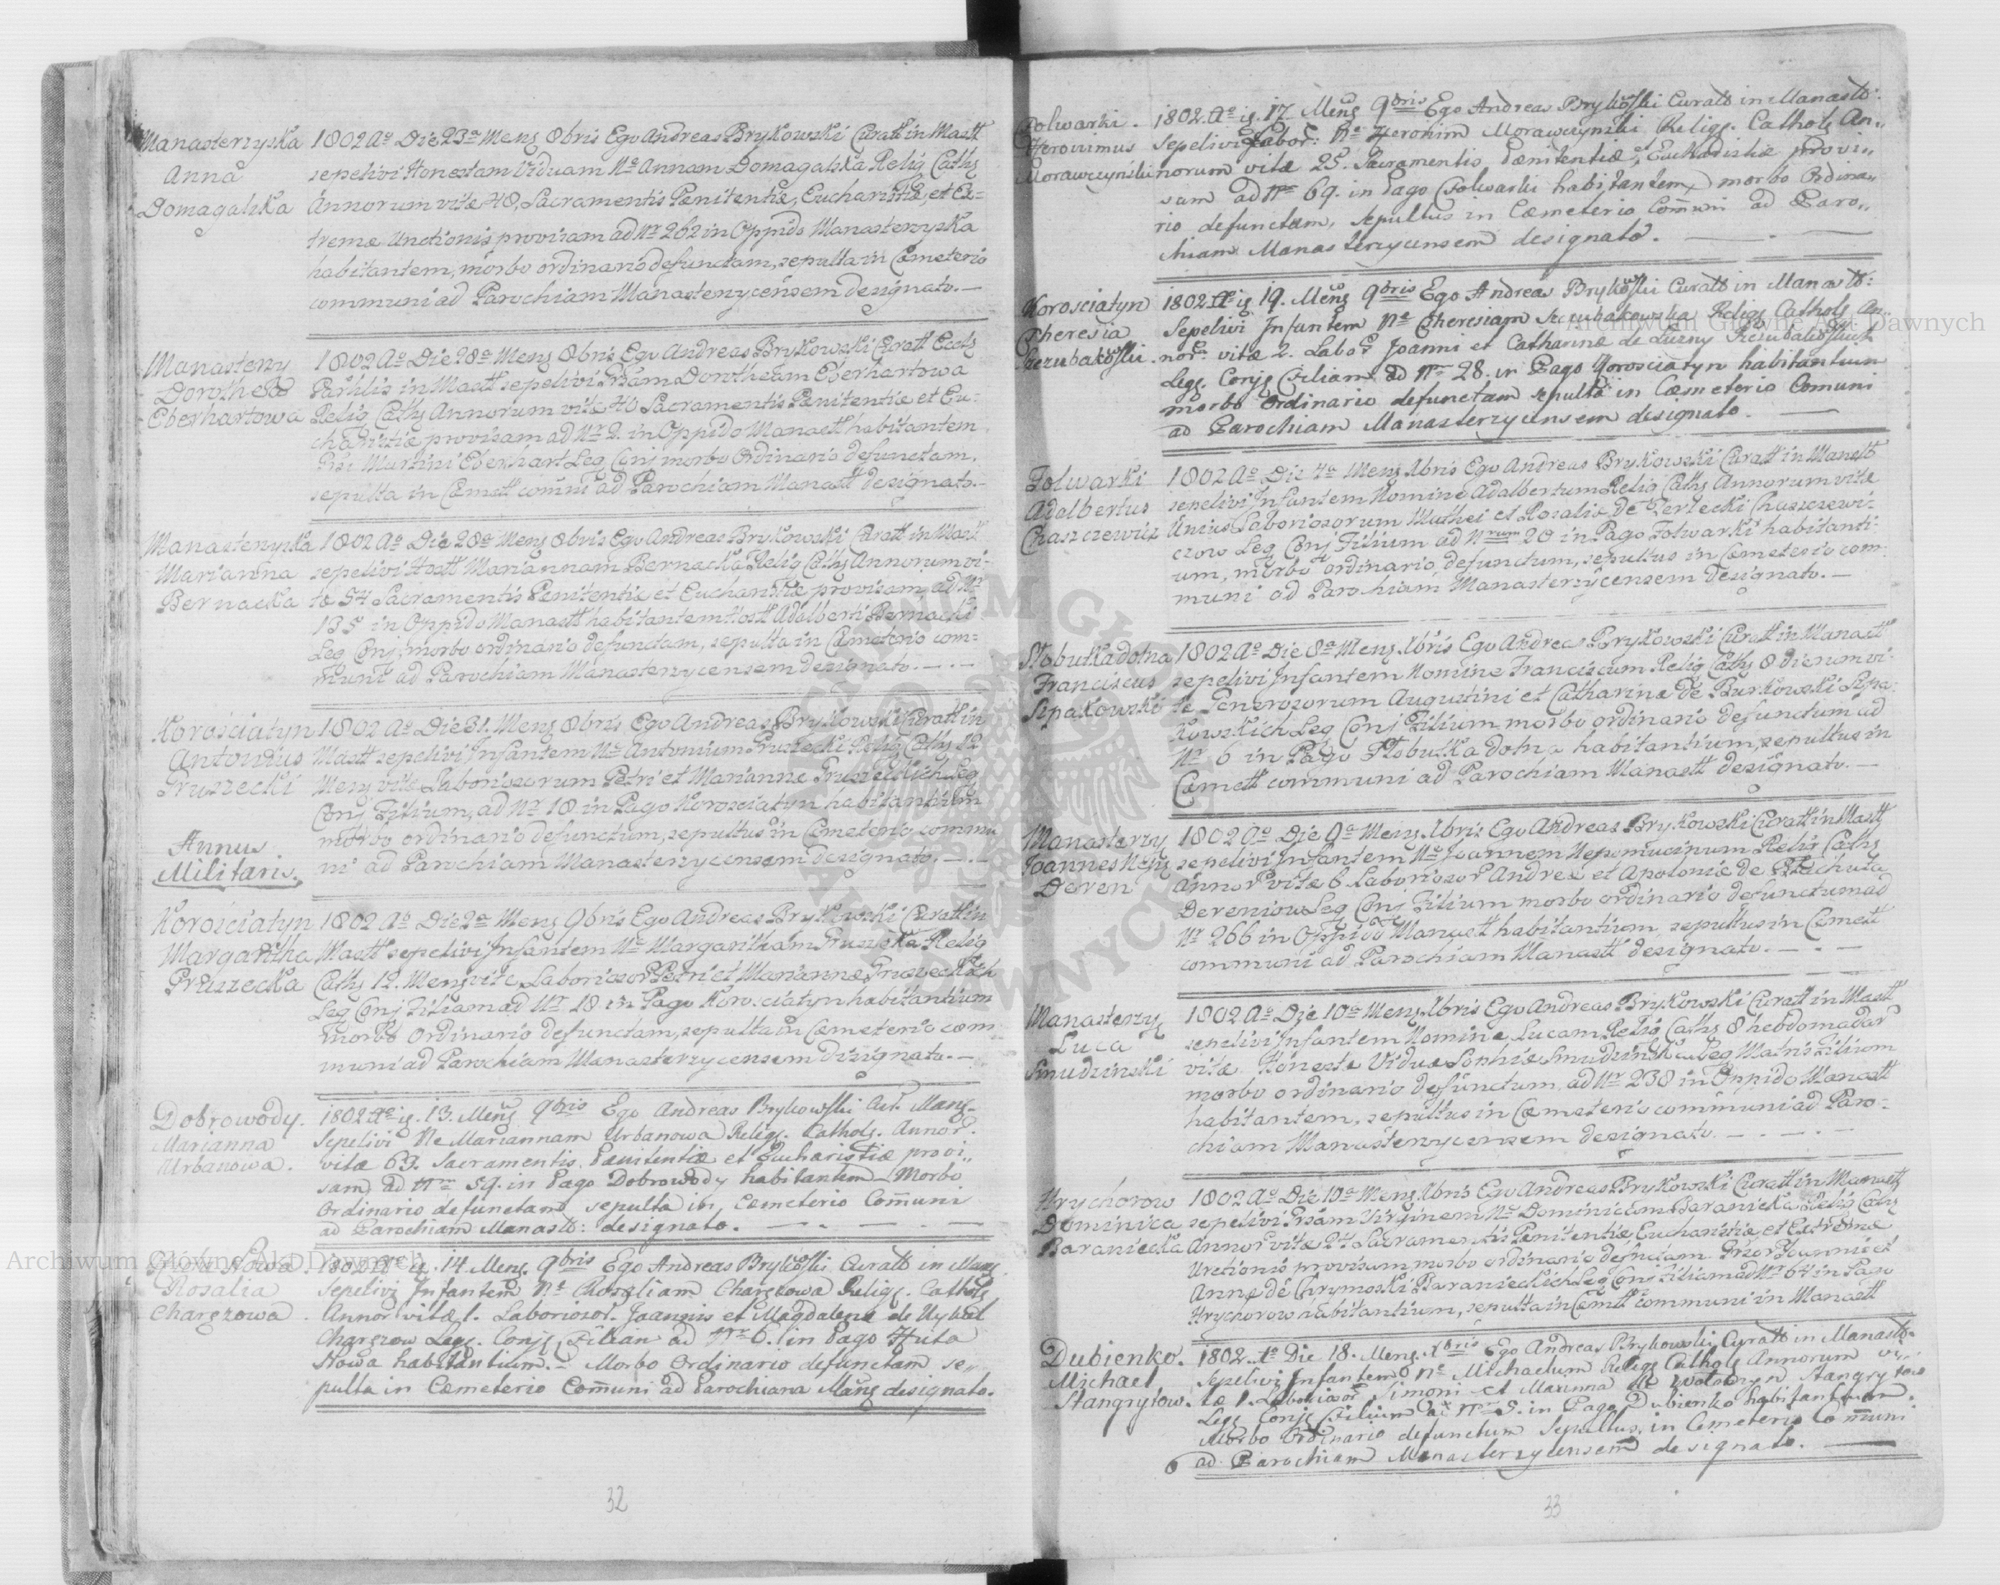 Manasterzyska
Anna
Domagalska
1802 Ao Die 23a Mens 8bris Ego Andreas Brykowski Curatt in Mastt
sepelivi Honestam Viduam Ne Annam Domagalska Relig Caths
Annorum vitæ 48, Sacramentis Pænitentiæ, Eucharistiæ, et Ex=
tremæ Unctionis provisam ad Nr 262 in Oppido Manasterzyska
habitantem, morbo ordinario defunctam, sepulta in Cæmeterio
communi ad Parochiam Manasterzycensem designato. —
Manasterzy
Dorothea
Eberhartowa
1802 Ao Die 28a Mens 8bris Ego Andreas Brykowski Curatt Eccls
Parhlis in Mastt sepelivi Grsam Dorotheam Eberhartowa
Relig Caths Annorum vitæ 40 Sacramentis Pænitentiæ et Eu=
charistiæ provisam ad Nr 2. in Oppido Manastt habitantem
Grsi Martini Eberhart Leg Conj morbo ordinario defunctam,
sepulta in Cæmett comuni ad Parochiam Manastt designato. —
Manasterzyska
Marianna
Bernacka
1802 Ao Die 28a Mens 8bris Ego Andreas Brykowski Curatt in Mastt
sepelivi Hostt Mariannam Bernacka Relig Caths Annorum vi-
tæ 54 Sacramentis Pænitentiæ et Eucharistiæ provisam, ad Nr
135 in Oppido Manastt habitantem Hostt Adalberti Bernacki
Leg Conj, morbo ordinario defunctam, sepulta in Cæmeterio com=
muni ad Parochiam Manasterzycensem designato. — . —
Korosciatyn
Antonius
Gruszecki
1802 Ao Die 31. Mens 8bris Ego Andreas Brykowski Curatt in
Mastt sepelivi Infantem Ne Antonium Gruszecki Relig Caths 12
Mens vitæ Laboriosorum Petri et Marianne Gruszeckich Leg
Conj Filium, ad Nr 18 in Pago Korosciatyn habitantium
morbo ordinario defunctum, sepultus in Cæmeterio commu
ni ad Parochiam Manasterzycensem designato. — . —
Annus
Militaris.
Korosciatyn
Margaritha
Gruszecka
1802 Ao Die 2a Mens 9bris Ego Andreas Brykowski Curatt in
Mastt sepelivi Infantem Ne Margaritham Gruszecka Relig
Caths 12. Mens vitæ Laboriosor Petri et Mariannæ Gruszeckich
Leg Conj Filiam ad Nr 18 in Pago Korosciatyn habitantium
morbo ordinario defunctam, sepulta in Cæmeterio com
muni ad Parochiam Manasterzycensem disignato. —
Dobrowody.
Marianna
Urbanowa.
1802 Ao ig. 13. Mens 9bris Ego Andreas Brykowski Cur. Mans-
Sepelivi Ne Mariannam Urbanowa Religs. Cathols. Annor.
vitæ 63. Sacramentis. Pænitentiæ et Eucharistiæ provi,,
sam, ad Nrm 59. in Pago Dobrowody habitantem - Morbo
Ordinario defunctam sepulta in Cæmeterio Comuni
ad Parochiam Manast: designato. — . — . —
Huta Nowa.
Rosalia
Chargzowa
1802 Ao ig. 14. Mens 9bris Ego Andreas Brykoski Curatt in Mans
Sepelivi Infantem Ne Rosaliam Chargzowa Religs. Cathols
Annor vitæ 1. Laboriosor. Joannis et Magdalena de
Chargzow Legs. Conjs Filian ad Nrm 6. in Pago Huta
Nowa habitantium. - Morbo Ordinario defunctam se,,
pulta in Cæmeterio Comuni ad Parochiana Mans designato.
32
Folwarki.
Heronimus
Morawczynski
1802 Ao ig. 17. Mens 9bris Ego Andreas Brykoski Curatt in Manast:
Sepelivi Labor. Ne Heronim Morawczynski Religs. Cathols An,,
norum vitæ 25. Sacramentis Pænitentiæ, Eucharistiæ provi,,
sam ad Nrm 69. in Pago Folwarki habitantem, morbo Ordina,,
rio defunctam, sepultus in Cæmeterio Comuni ad Paro,,
chiam Manasterzycensem designato. — . —
Korosciatyn
Theresia
1802 Ao ig. 19. Mens 9bris Ego Andreas Brykoski Curatt in Manast:
Sepelivi Infantem Ne Theresiam Religs Cathols An,,
nor. vitæ 2. Labor Joanni et Catharinæ de
Legs. Conjs Filiam ad Nrm 28. in Pago Korosciatyn habitantium
morbo Ordinario defunctam sepulta in Cæmeterio Comuni
ad Parochiam Manasterzycensem designato. —
Folwarki
Adalbertus
Chaszczewicz
1802 Ao Die 4a Mens Xbris Ego Andreas Brykowski Curatt in Manstt
sepelivi Infantem Nomine Adalbertum Relig Caths Annorum vitæ
Unius Laboriosorum Mathei et Rosaliæ de Terlecki Chaszczewi-
czow Leg Conj Filium ad Nrum 20 in Pago Folwarki habitanti-
um, morbo ordinario, defunctum, sepultus in Cæmeterio com-
muni ad Parochiam Manasterzycensem designato. —
Słobutka dolna
Franciscus
Szpakowski
1802 Ao Die 8a Mens Xbris Ego Andreas Brykowski Curatt in Manastt
sepelivi Infantem Nomine Franciscum Relig Caths 8 dierum vi-
tæ Generosorum Augustini et Catharinæ de Burkowski Szpa-
kowskich Leg Conj Filium morbo ordinario defunctum ad
Nr 6 in Pago Słobutka dolna habitantium, sepultus in
Cæmett communi ad Parochiam Manastt designato. —
Manasterzy
Joannes
Deren
1802 Ao Die 9a Mens Xbris Ego Andreas Brykowski Curatt in Mastt
sepelivi Infantem Ne Joannem Nepomucinum Relig Caths
Annor vitæ 6 Laboriosor Andreæ et Apoloniæ de Stachuta
Dereniow Leg Conj Filium morbo ordinario defunctum ad
Nr 266 in Oppido Manastt habitantium, sepultus in Cæmett
communi ad Parochiam Manastt designato. — . —
Manasterzy
Luca
Smudzinski
1802 Ao Die 10a Mens Xbris Ego Andreas Brykowski Curatt in Mastt
sepelivi Infantem Nomine Lucam Relig Caths 8 hebdomadar
vitæ Honestæ Viduæ Sophiæ Smudzinska Leg Matris Filium
morbo ordinario defunctum, ad Nr 238 in Oppido Manastt
habitantem, sepultus in Cæmeterio communi ad Paro-
chiam Manasterzycensem designato. — . — . —
Hrychorow
Dominica
Baraniecka
1802 Ao Die 10a Mens Xbris Ego Andreas Brykowski Curatt in Manastt
sepelivi Grsam Virginem Ne Dominicam Baraniecka Relig Caths
Annor vitæ 24 Sacramentis Pænitentiæ Eucharistiæ, et Extremæ
Unctionis provisam morbo ordinario defunctam. Grsor Joannis et
Annæ de Chrymoski Baranieckich Leg Conj Filiam ad Nr 64 in Pago
Hrychorow habitantium, sepulta in Cæmtt communi in Manastt
Dubienko.
Michael
Stangrytow.
1802. Ao Die 18. Mens. Xbris Ego Andreas Brykowski Curatt in Manast-
Sepelivi Infantem Ne Michaelum Religs Cathols Annorum vi,,
tæ 1. Laboriosor Simoni et Marianna de Wołodzyn Stangrytow
Legs Conjs Filium ad Nrm 5. in Pago Dubienko habitantium.
Morbo Ordinario defunctum Sepultus, in Cæmeterio Comuni
ad Parochiam Manasterzycensem designato. —
33
Archiwum Główne Akt Dawnych
Archiwum Główne Akt Dawnych
ARCHIWUM GŁÓWNE AKT DAWNYCH